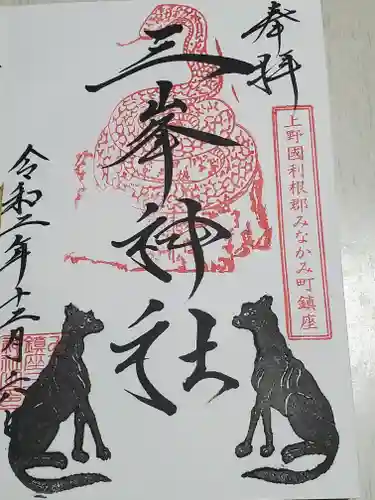 奉拝
上野國利根郡みなかみ町鎮座
三峯神社
令和二年十二月六日